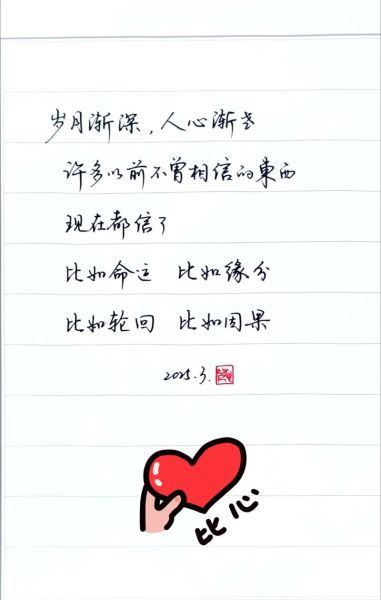 岁月渐深，人心渐老
许多以前不曾相信的東西
现在都信了
比如命运 比如缘分
比如轮回 比如因果
2025.3.
比心